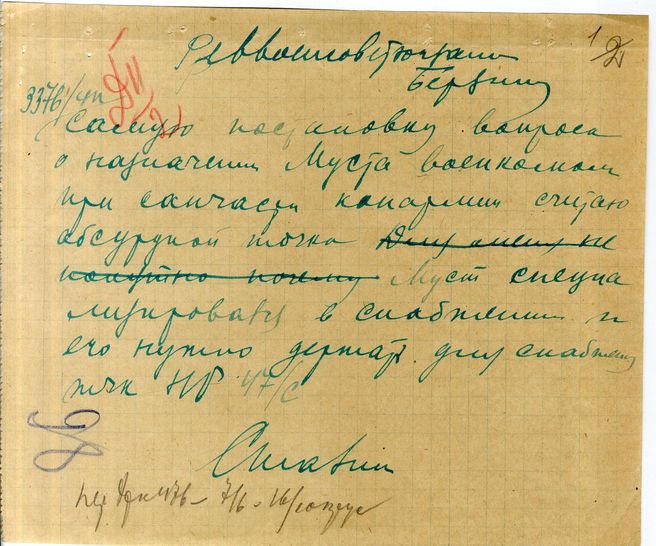 Реввоенсовет югзап
Берзину
1
2
3376/4п
Самую постановку вопроса
о назначении Муста военкомом
при санчасти конармии считаю
абсурдной точка Для меня не
понятно почему Муст специа
лизировался в снабжении и
его нужно держать для снабжения
тчк НР 47/с
Сталин